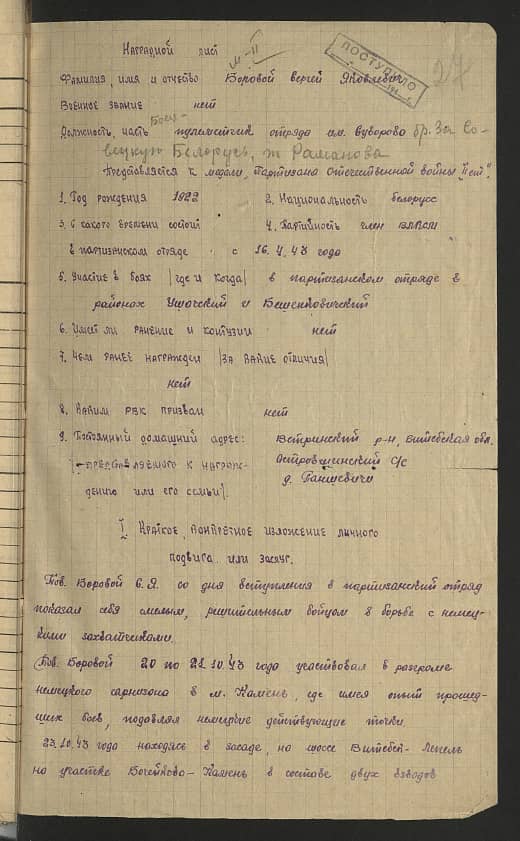 Наградной лист
м-II
ПОСТУПИЛО
27
Фамилия, имя и отчество Боровой Сергей Яковлевич
Военное звание нет
Боец-
Должность, часть пулеметчик отряда им. Суворова бр. За Со-
ветскую Белорусь, т. Романова
Представляется к медали „Партизана Отечественной войны" II ст".
1. Год рождения 1922 2. Национальность белорусс
3. С какого времени состоит 4. Партийность член ВЛКСМ
в партизанском отряде с 16.4.43 года
5. Участие в боях /где и когда/ в партизанском отряде в
районах Ушачский и Бешенковичский
6. Имеет ли ранение и контузии нет
7. Чем ранее награжден /за какие отличия/
нет
8. Каким РВК призван нет
9. Постоянный домашний адрес: Ветринский р-н, Витебская обл.
/представляемого к награж- Островщинский С/С
дению или его семьи/. д. Панцевичи
I. Краткое, конкретное изложение личного
подвига или заслуг.
Тов. Боровой С.Я. со дня вступления в партизанский отряд
показал себя смелым, решительным бойцом в борьбе с немец-
кими захватчиками.
Тов. Боровой 20 по 21.10.43 года участвовал в разгроме
немецкого гарнизона в м. Камень, где имея опыт прошед-
ших боев, подавлял немецкие действующие точки
23.10.43 года находясь в засаде, на шоссе Витебск-Лепель
на участке Бочейково-Камень в составе двух взводов